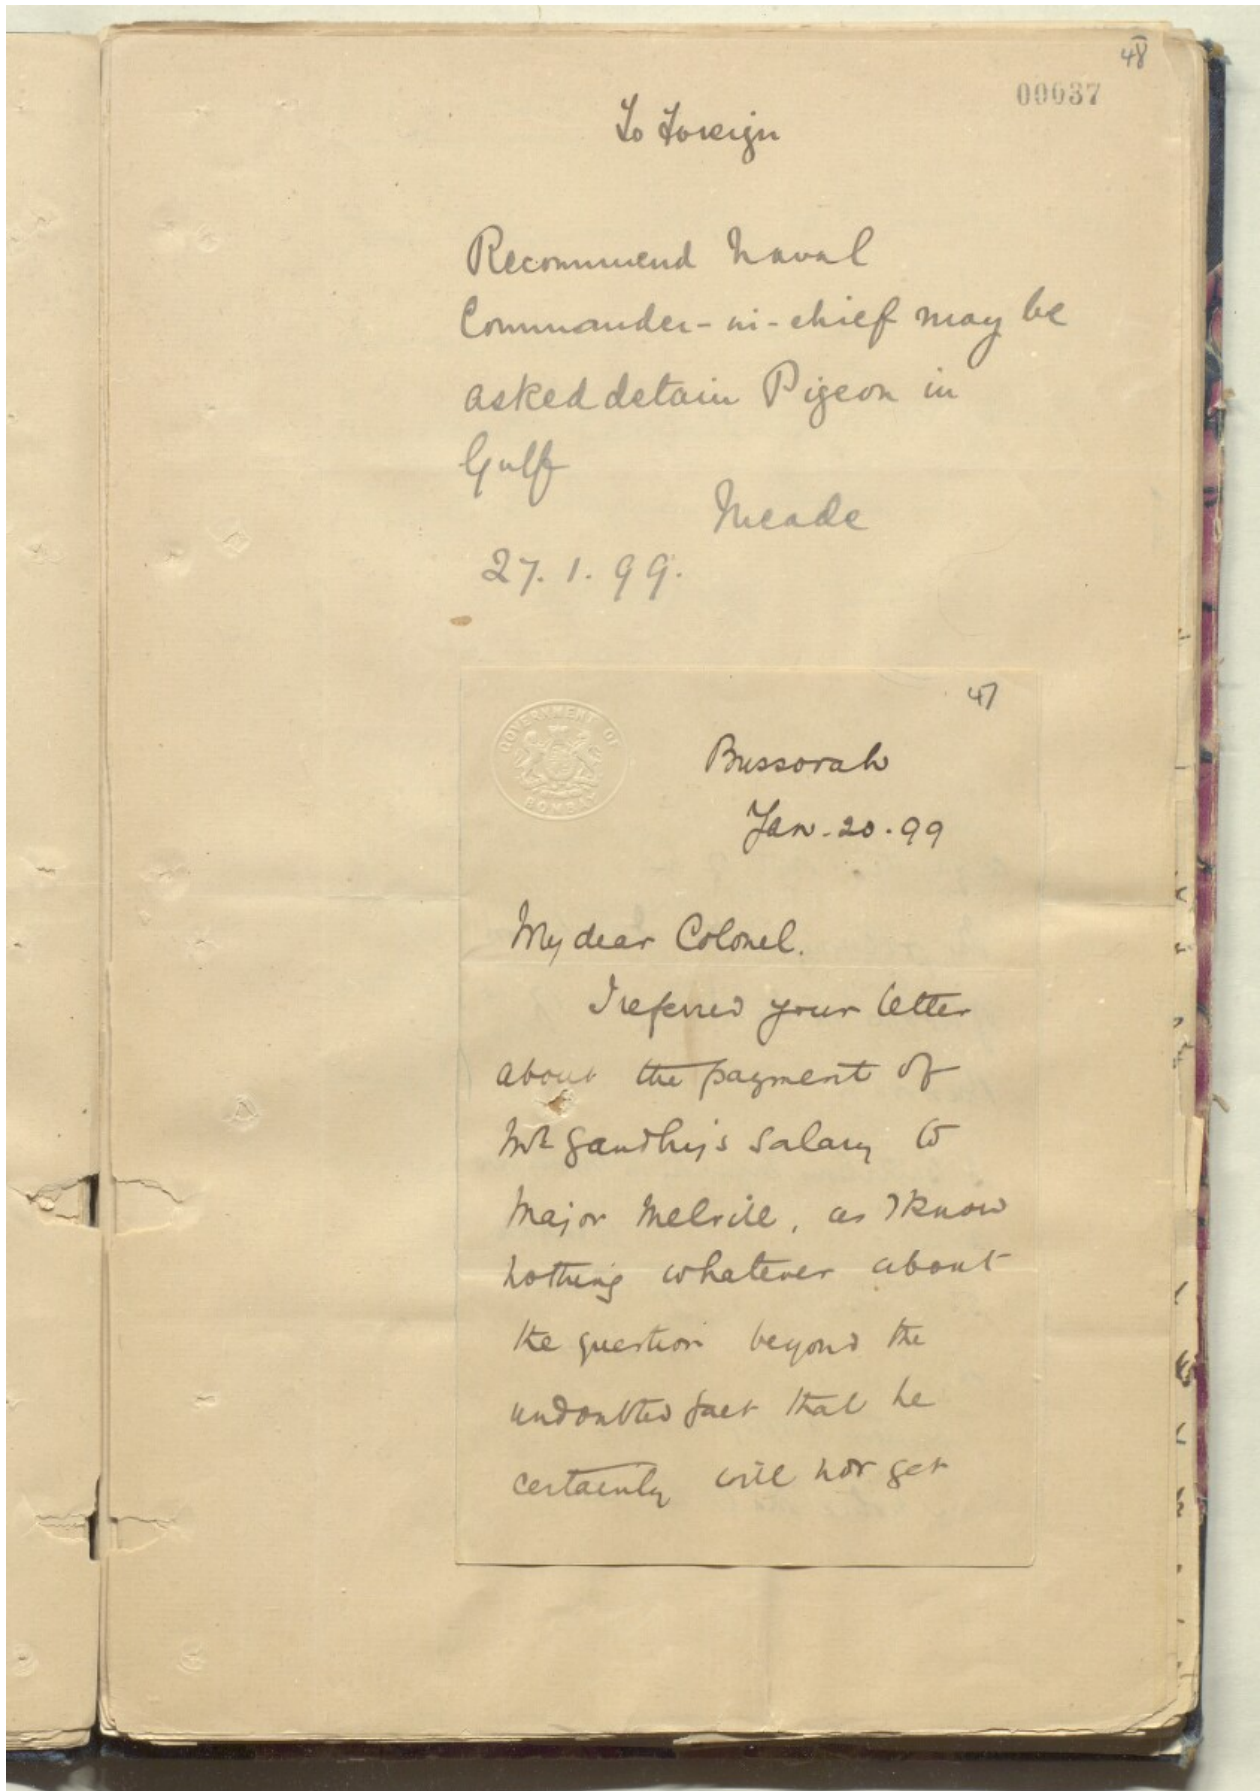 48
00037
To Foreign
Recommend Naval
Commander-in-chief may be
asked detain Pigeon in
Gulf
Meade
27.1.99.
47
GOVERNMENT OF
BOMBAY
Bussorah
Jan. 20. 99
My dear Colonel.
I referred your letter
about the payment of
Mr Gandhy's salary to
Major Melvill, as I know
nothing whatever about
the question beyond the
undoubted fact that he
certainly will not get